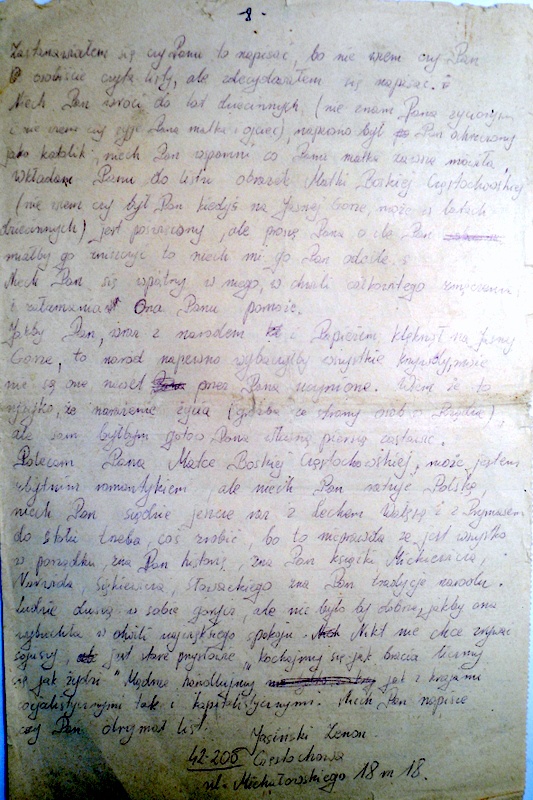 - 8 -
Zastanawiałem się czy Panu to napisać, bo nie wiem czy Pan
osobiście czyta listy, ale zdecydowałem się napisać.
Niech Pan wróci do lat dziecinnych, (nie znam Pana życiorysu
i nie wiem czy żyje Pana matka i ojciec), napewno był Pan ochrzczony
jako katolik, niech Pan wspomni co Pana matka zawsze mówiła
wkładam Panu do listu obrazek Matki Boskiej Częstochowskiej
(nie wiem czy był Pan kiedyś na Jasnej Górze, może w latach
dziecinnych) jest poświęcony, ale proszę Pana o ile Pan
miałby go zniszczyć to niech mi go Pan odeśle.
Niech Pan się wpatrzy w niego, w chwili całkowitego zmęczenia
i załamania Ona Panu pomoże.
Jakby Pan, wraz z narodem i Papieżem, klęknął na Jasnej
Górze, to naród napewno wybaczyłby wszystkie krzywdy, może
nie są one przez Pana uczynione. Wiem że to
ryzyko, że narażenie życia (groźba ze strony osób z Rządu),
ale sam byłbym gotów Pana własną piersią zasłonić.
Polecam Pana Matce Boskiej Częstochowskiej, może jestem
zbytnim romantykiem, ale niech Pan ratuje Polskę
niech Pan siądzie jeszcze raz z Lechem Wałęsą i z Prymasem
do stołu trzeba coś zrobić, bo to nieprawda że jest wszystko
w porządku, zna Pan historię, zna Pan książki Mickiewicza,
Norwida, Sienkiewicza, Słowackiego zna Pan tradycje narodu.
Ludzie duszą w sobie gorycz, ale nie było by dobrze, jakby ona
wybuchła w chwili największego spokoju. Nikt nie chce zrywać
sojuszy, jest stare przysłowie „kochajmy się jak bracia liczmy
się jak żydzi" Mądrze handlujmy jak z krajami
socjalistycznymi tak i kapitalistycznymi. Niech Pan napisze
czy Pan otrzymał list.
Jasiński Zenon
42-200 Częstochowa
ul. Michałowskiego 18 m 18.